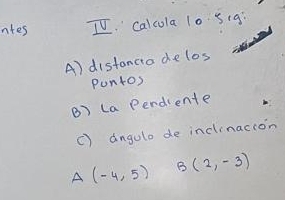 ntes
IV. Calcula lo sig:
A) distancia de los
Puntos
B) La Pendiente
C) ángulo de inclinación
A (-4, 5) B (2, -3)